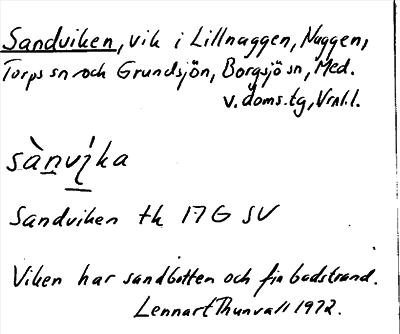 Sandviken, vik i Lillnaggen, Naggen,
Torps sn och Grundsjön, Borgsjö sn, Med.
v. doms.tg, Vrnl.l.
sànvíka
Sandviken tk 17G SV
Viken har sandbotten och fin badstrand.
Lennart Thunvall 1972.